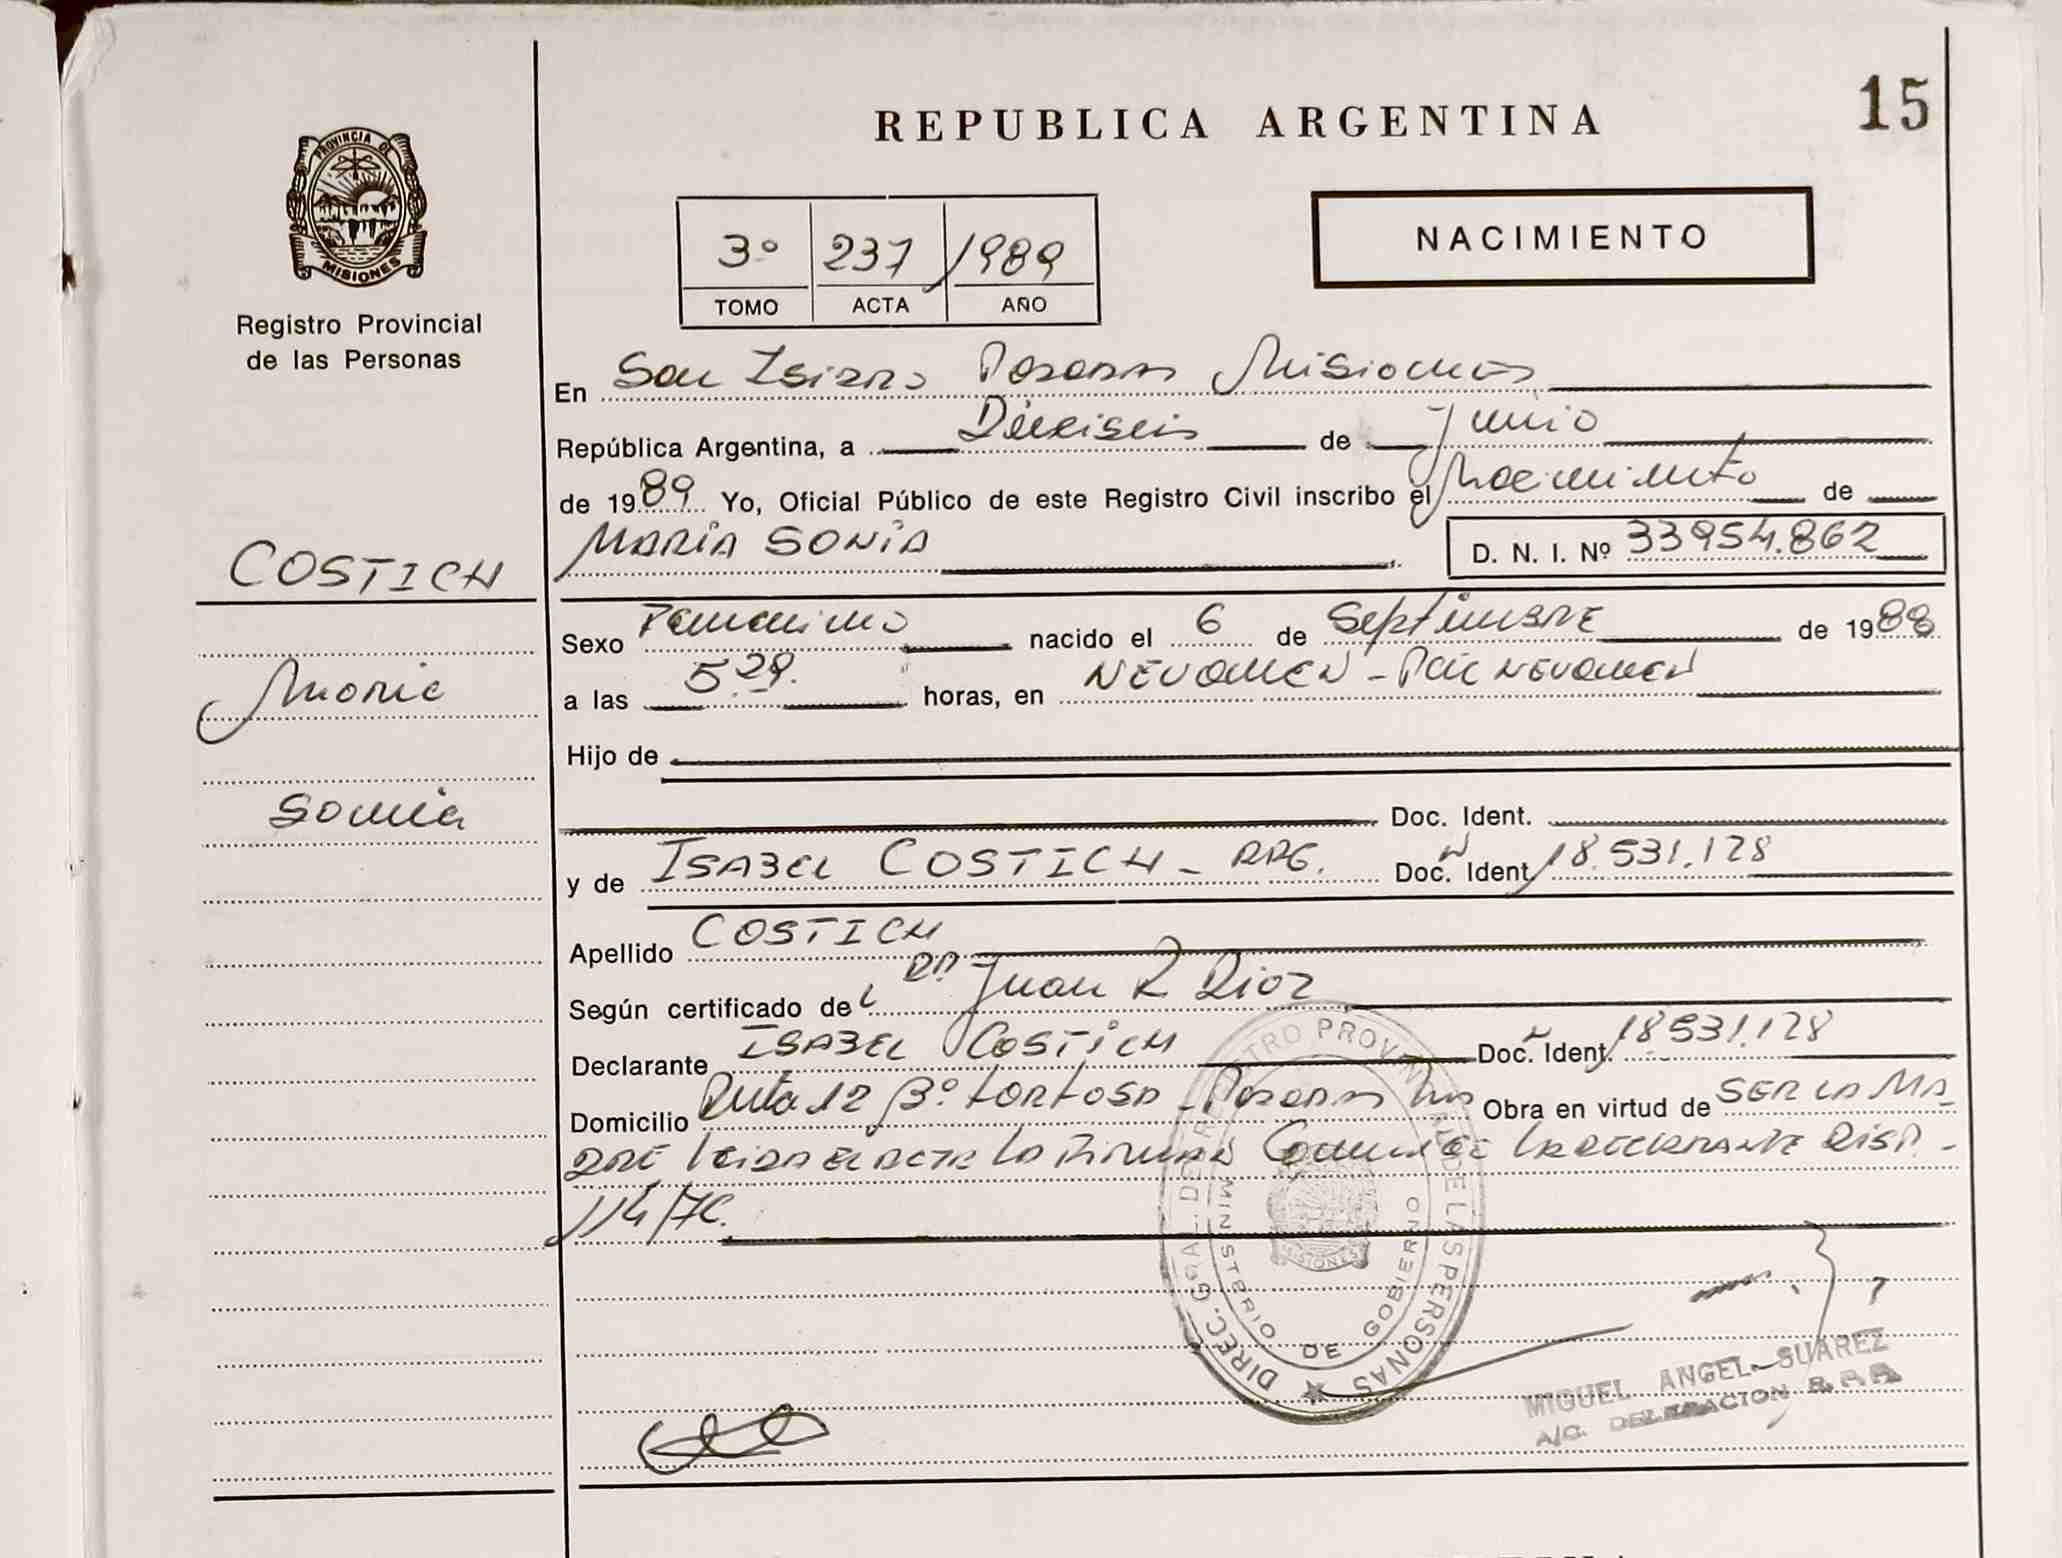 REPUBLICA ARGENTINA
15
PROVINCIA DE
MISIONES
Registro Provincial
de las Personas
3º 237 1989
TOMO ACTA AÑO
NACIMIENTO
En San Isidro Posadas Misiones
República Argentina, a Dieciseis de Junio
de 1989 Yo, Oficial Público de este Registro Civil inscribo el Nacimiento de
MARIA SONIA D. N. I. Nº 33954.862
COSTICH
Maria
Sonia
Sexo Femenino nacido el 6 de Septiembre de 1988
a las 5.29. horas, en
Hijo de
Doc. Ident.
y de ISABEL COSTICH - ARG. Doc. Ident 18.531.128
Apellido COSTICH
Según certificado del DR. Juan R Dioz
Declarante ISABEL COSTICH Doc. Ident. 18531.128
Domicilio Ruta 12 Bº tortosa - Posadas Mns Obra en virtud de SER LA MA
DRE Leida el acta la firma LA DECLARANTE DISP.
114/76.
DIREC. GRAL. DEL REGISTRO PROVINCIAL DE LAS PERSONAS
MINISTERIO DE GOBIERNO
MISIONES
MIGUEL ANGEL SUAREZ
A/C. DELEGACION